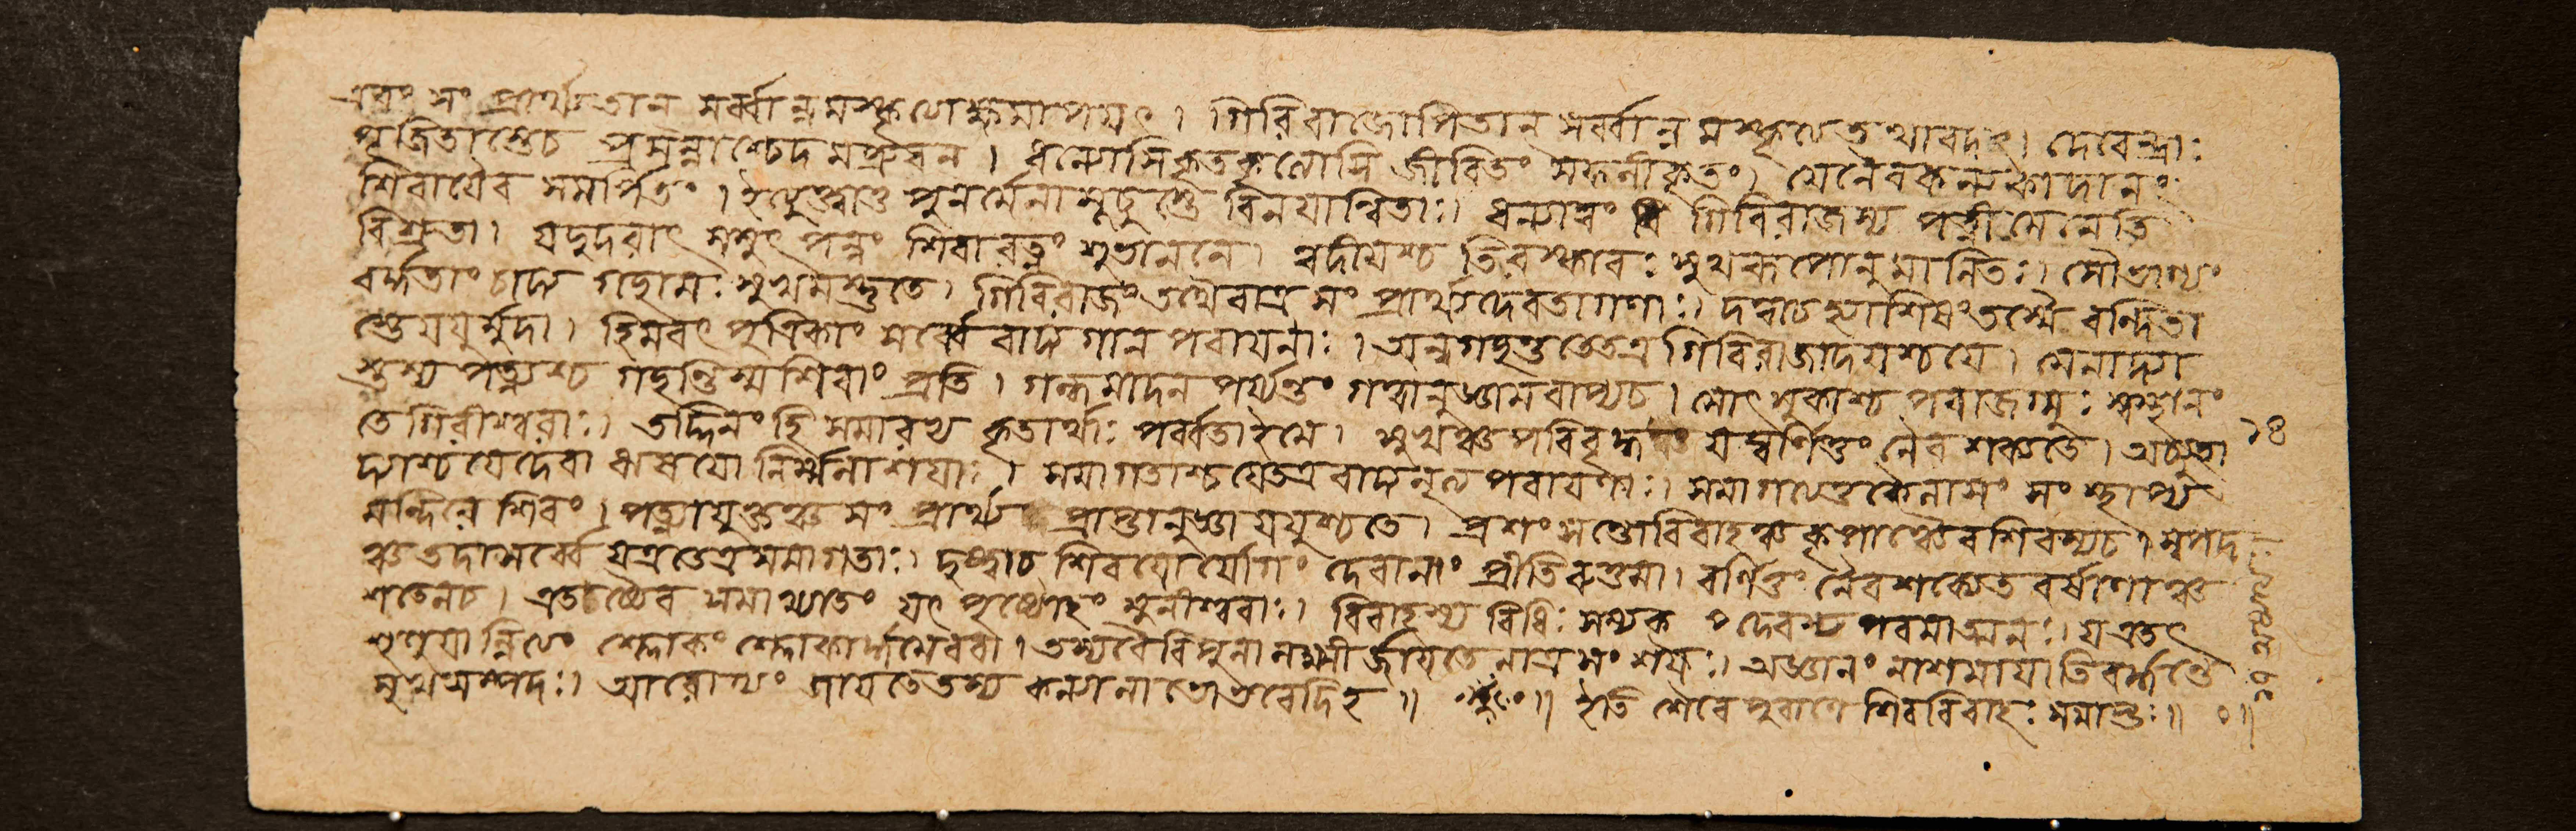 এবং সং প্রার্থ্যতান সর্ব্বান্নমস্কৃত্যেক্ষমাপয়ৎ। গিরিরাজোপিতান সর্ব্বান নমস্কৃত্যে তথাবদৎ। দেবেন্দ্রাঃ
পূজিতাস্তেচ প্রসন্নাশ্চেদমব্রুবন। ধন্যোসি কৃতকৃত্যোসি জীবিতং সফলীকৃতং। যেনৈবকন্যকাদানং
শিবায়ৈব সমর্পিতং। ইত্যুক্ত্বাতু পুনর্মেনামূচুস্তে বিনয়ান্বিতাঃ। ধন্যাত্বং গিরিরাজস্য পত্নী মেনেতি
বিশ্রুতা। যদুদরাৎ সমুৎপন্নং শিবারত্নং শুভাননে। ত্বদীয়শ্চ তিরস্কারঃ সুখরূপোনুমানিতঃ। সৌভাগ্যং
বর্দ্ধতাং চাদ্য গচ্ছামঃ সুখমস্তুতে। গিরিরাজং তথৈবাত্র সং প্রার্থ্যদেবতাগণাঃ। দত্বাচৈবাশিষং তস্মৈ বন্দিতা
স্তেযযুর্মুদা। হিমবৎ পুত্রিকাং সর্ব্বে বাদ্যগান পরায়নাঃ। অন্বগচ্ছস্ততেতত্র গিরিরাজাদয়শ্চযে। মেনাদ্যা
স্তস্য পত্ন্যশ্চ গচ্ছন্তিস্ম শিবাং প্রতি। গন্ধমাদন পর্য্যন্তং গত্বানুজ্ঞামবাপ্যচ। সোৎসুকাশ্চ পরাজগ্মুঃ স্বস্থানং
তে গিরীশ্বরাঃ। তদ্দিনং হি সমারভ্য কৃতার্থাঃ পর্ব্বতা ইমে। সুখঞ্চ পরিবৃদ্ধং যদ্বর্ণিতুং নৈব শক্যতে। অচ্যুতা
দ্যাশ্চ যেদেবা ঋষয়ো নির্ম্মলাশয়াঃ। সমাগতাশ্চ যেতত্র বাদ্যনৃত্য পরায়ণাঃ। সমাগত্যেতু কৈলাসং সংস্থাপ্য
মন্দিরে শিবং। পত্ন্যাযুক্তঞ্চ সং প্রার্থ্য প্রাপ্তানুজ্ঞা যযুশ্চতে। প্রশংসন্তোবিবাহঞ্চ কৃপাঞ্চৈব শিবস্যচ। স্বপদ
ঞ্চ তদা সর্ব্বে যত্রতেত্র সমাগতাঃ। দৃষ্ট্বাচ শিবয়োর্যোগং দেবানাং প্রীতিরুত্তমা। বর্ণিতুং নৈবশক্যেত বর্ষাণাঞ্চ
শতেনচ। এতচ্চৈব সমাখ্যাতং যৎ পৃষ্টোহং মুনীশ্বরাঃ। বিবাহস্য বিধিঃ সম্যক দেবস্য পরমাত্মনঃ। য এতৎ
শৃণুয়ান্নিত্যং শ্লোকং শ্লোকার্দ্ধমেববা। তস্যবৈ বিপুলা লক্ষ্মী র্জায়তে নাত্র সংশয়ঃ। অজ্ঞানং নাশমায়াতি বর্দ্ধন্তে
সুখসম্পদঃ। আরোগ্যং জায়তেতস্য কল্যনা তোভবেদিহ॥ ॥ ইতি শৈবে পুরাণে শিববিবাহঃ সমাপ্তঃ॥ ০॥
১৪